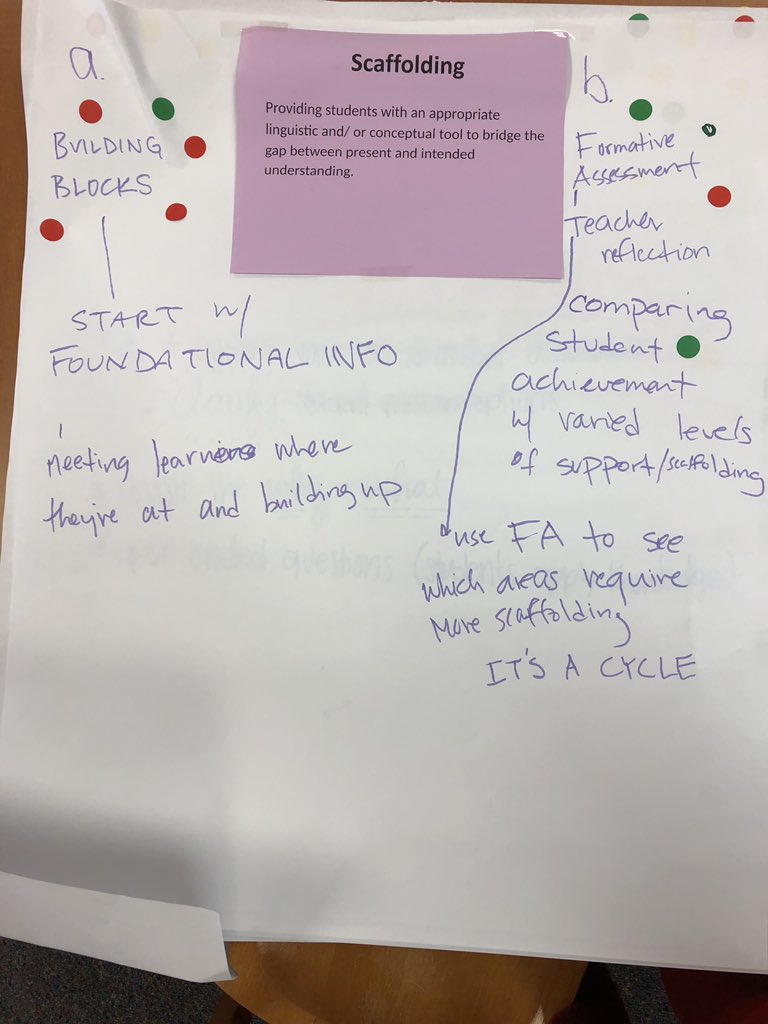 a.
BUILDING
BLOCKS
START w/
FOUNDATIONAL INFO
Meeting learners where
they're at and building up
Scaffolding
Providing students with an appropriate
linguistic and/ or conceptual tool to bridge the
gap between present and intended
understanding.
b.
Formative
Assessment
Teacher
reflection
comparing
student
achievement
w/ varied levels
of support/scaffolding
use FA to see
which areas require
More scaffolding
IT'S A CYCLE